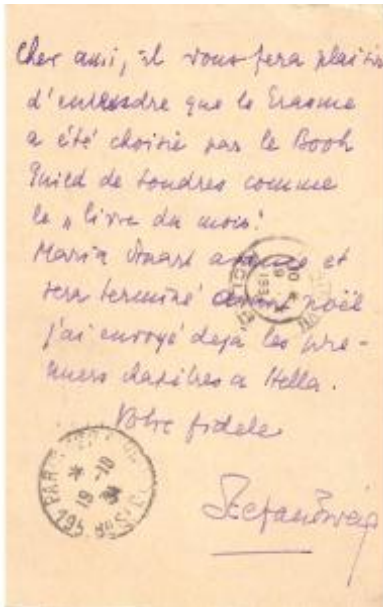 Cher ami, il vous fera plaisir
d'entendre que le Erasme
a été choisie par le Book
Guild de Londres comme
le „livre du mois!
Maria Stuart avance et
sera terminé avant noël
j'ai envoyé deja les pre-
miers chapitres a Hella.
Votre fidele
Stefan Zweig
PARIS
19 -10
34